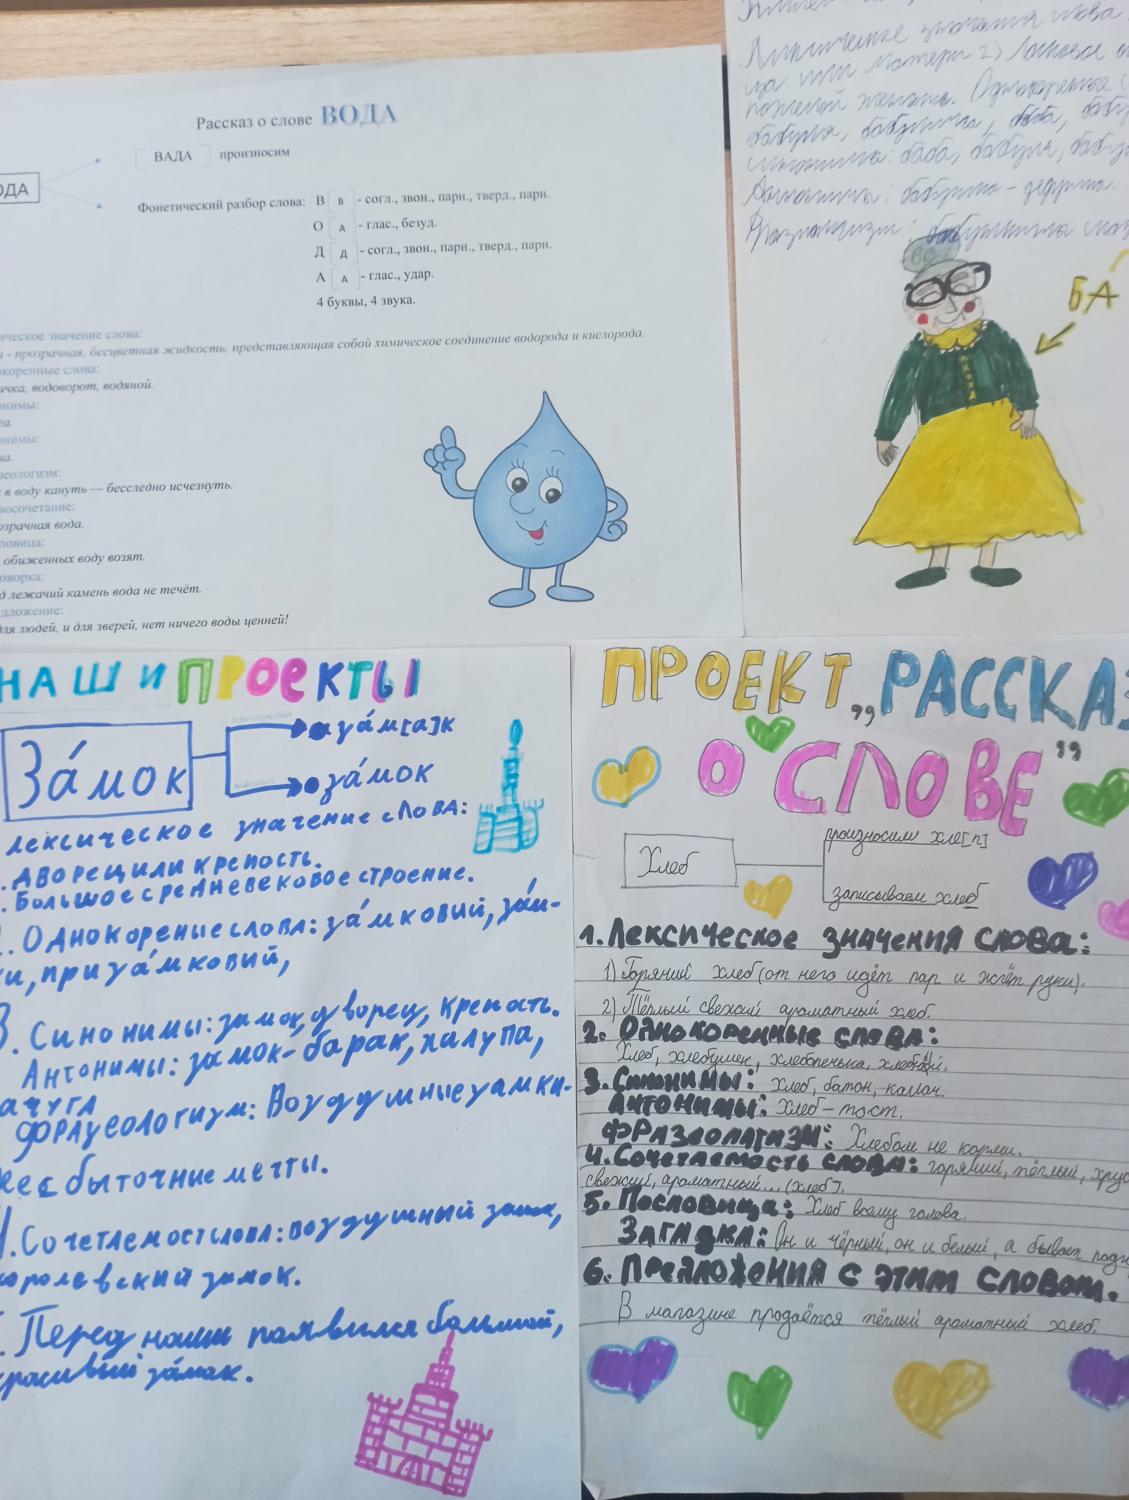 Рассказ о слове ВОДА
ОДА
ВАДА произносим
Фонетический разбор слова: В [в] - согл., звон., парн., тверд., парн.
О [А] - глас., безуд.
Д [Д] - согл., звон., парн., тверд., парн.
А [А] - глас., удар.
4 буквы, 4 звука.
ическое значение слова:
- прозрачная, бесцветная жидкость, представляющая собой химическое соединение водорода и кислорода.
окоренные слова:
ичка, водоворот, водяной.
онимы:
онимы:
еологизм:
в воду кануть — бесследно исчезнуть.
восочетание:
озрачная вода.
ловица:
обиженных воду возят.
оворка:
д лежачий камень вода не течёт.
дложение:
для людей, и для зверей, нет ничего воды ценней!
значения слова
ца или матери 2)
пожилой женщины. Однокоренные
бабуля, бабулечка, баба,
баба, бабуля,
Антонимы: бабушка - дедушка.
БА
НАШИ ПРОЕКТЫ
За́мок
за́м[а]к
за́мок
лексическое значение слова:
. Дворец или крепость.
. Большое средневековое строение.
. Однокореные слова: за́мковий, за́м-
ки, приза́мковий,
3. Синонимы: замок, дворец, крепость.
Антонимы: замок-барак, халупа,
ачуга
Фразеологизм: Воздушные замки-
несбыточные мечты.
4. Сочетаемость слова: воздушный замок,
королевский замок.
. Перед нами появился большой,
красивый за́мок.
ПРОЕКТ „РАССКАЗ
О СЛОВЕ"
Хлеб
произносим хле[п]
записываем хлеб
1. Лексическое значения слова:
1) Горячий хлеб (от него идёт пар и жжёт руки).
2) Тёплый свежий ароматный хлеб.
2. Однокоренные слова:
Хлеб, хлебушек, хлебопенька, хлебный.
3. Синонимы: Хлеб, батон, калач.
Антонимы: Хлеб – тост.
Фразеологизм: Хлебом не корми.
4. Сочетаемость слова: горячий, тёплый, хрус
свежий, ароматный... (хлеб).
5. Пословица: Хлеб всему голова.
Загадка: Он и чёрный, он и белый, а бывает
6. Предложения с этим словом.
В магазине продаётся тёплый ароматный хлеб.